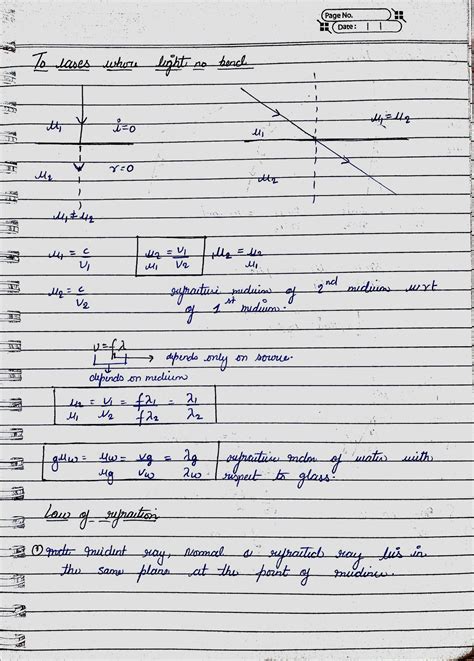 Page No.
Date: | |
To cases where light no bend
μ₁ i=0
μ₂ r=0
μ₁ ≠ μ₂
μ₁ μ₁=μ₂
μ₂
μ₁ = c/v₁ μ₂/μ₁ = v₁/v₂ ₁μ₂ = μ₂/μ₁
μ₂ = c/v₂ refractive medium of 2nd medium wrt
of 1st medium.
v = fλ
→ depends only on source.
depends on medium
μ₂/μ₁ = v₁/v₂ = fλ₁/fλ₂ = λ₁/λ₂
gμw = μw/μg = vg/vw = λg/λw refractive index of water with
respect to glass.
Law of refraction
① incident ray, normal & refracted ray lies in
the same plane at the point of incidence.